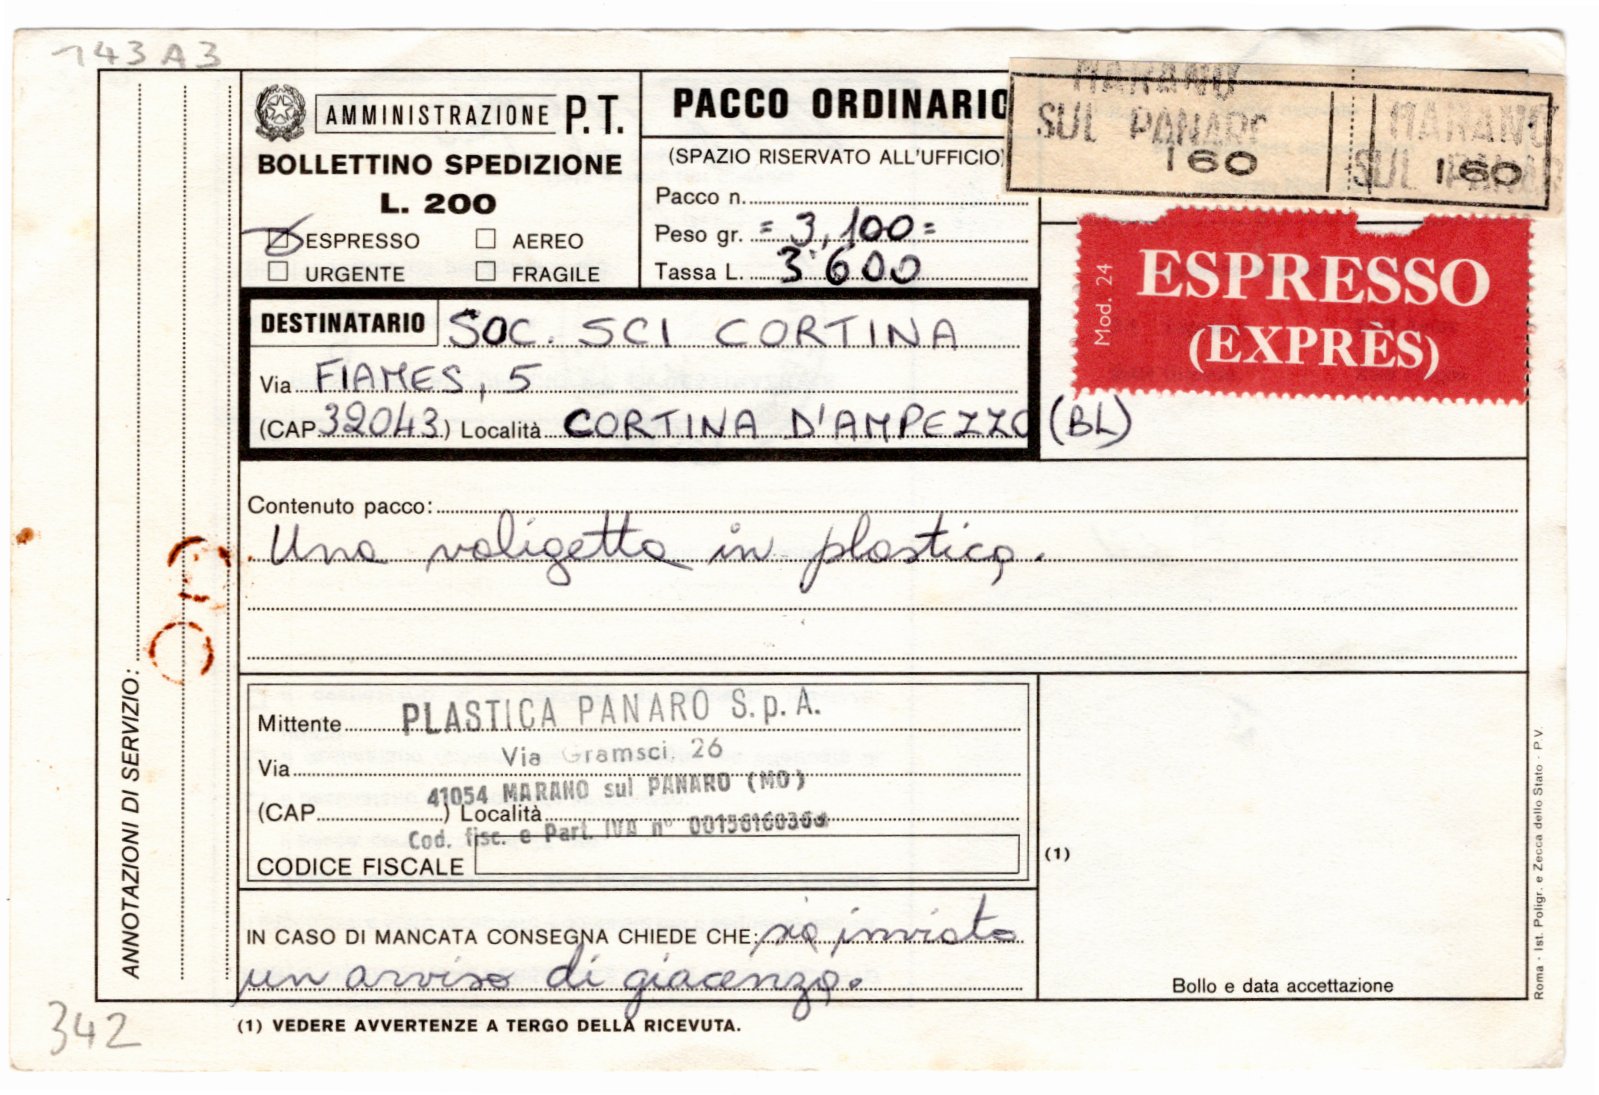 143A3
AMMINISTRAZIONE P.T.
BOLLETTINO SPEDIZIONE
L. 200
ESPRESSO AEREO
URGENTE FRAGILE
PACCO ORDINARIO
(SPAZIO RISERVATO ALL'UFFICIO)
Pacco n.
Peso gr. = 3,100 =
Tassa L. 3'600
MARANO
SUL PANARO
160
MARANO
SUL PANARO
160
Mod. 24
ESPRESSO
(EXPRÈS)
DESTINATARIO SOC. SCI CORTINA
Via FIAMES, 5
(CAP 32043) Località CORTINA D'AMPEZZO (BL)
Contenuto pacco:
Una valigetta in plastica.
ANNOTAZIONI DI SERVIZIO:
Mittente PLASTICA PANARO S.p.A.
Via Via Gramsci, 26
41054 MARANO sul PANARO (MO)
(CAP ) Località
Cod. fisc. e Part. IVA n°
CODICE FISCALE
(1)
IN CASO DI MANCATA CONSEGNA CHIEDE CHE: sia inviato
un avviso di giacenza.
Bollo e data accettazione
(1) VEDERE AVVERTENZE A TERGO DELLA RICEVUTA.
Roma - Ist. Poligr. e Zecca dello Stato - P.V.
342